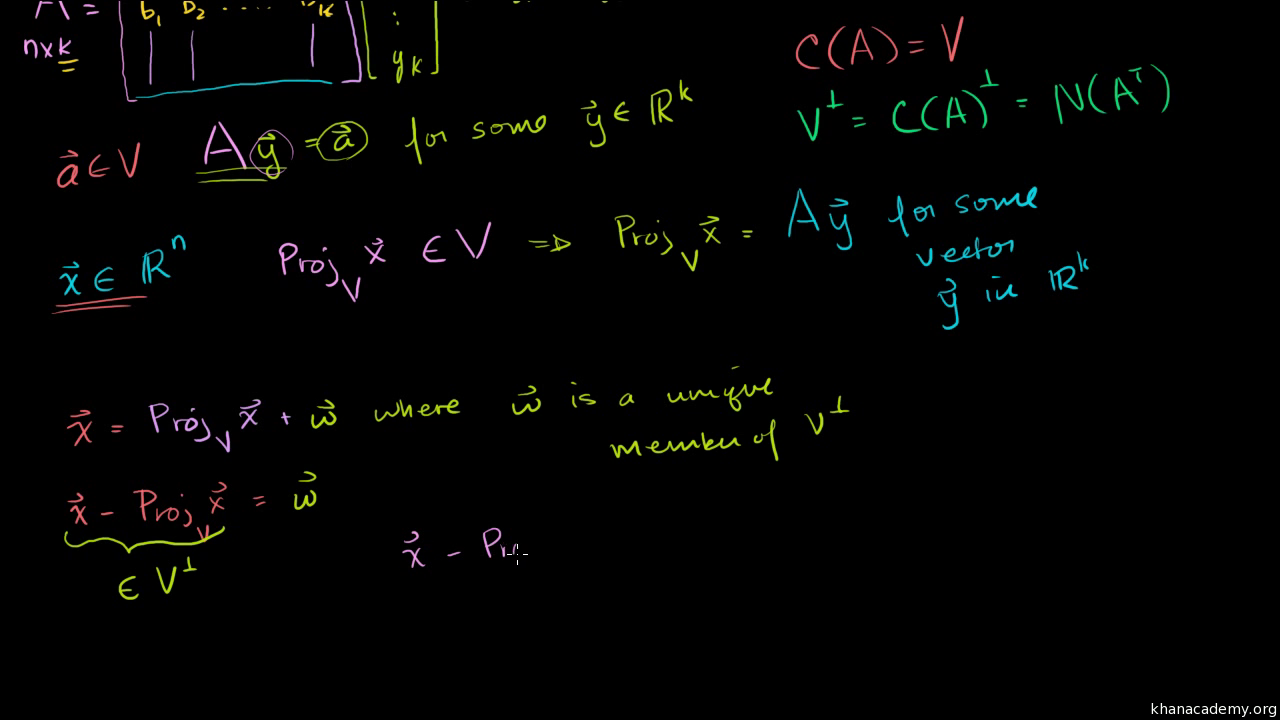 A = [ b₁ b₂ .... bₖ ] [ : yₖ ]
n×k
C(A) = V
V⊥ = C(A)⊥ = N(Aᵀ)
a⃗ ∈ V A y⃗ = a⃗ for some y⃗ ∈ ℝᵏ
x⃗ ∈ ℝⁿ Proj_V x⃗ ∈ V ⇒ Proj_V x⃗ = A y⃗ for some
vector
y⃗ in ℝᵏ
x⃗ = Proj_V x⃗ + w⃗ where w⃗ is a unique
member of V⊥
x⃗ - Proj_V x⃗ = w⃗
∈ V⊥
x⃗ - Pr
khanacademy.org